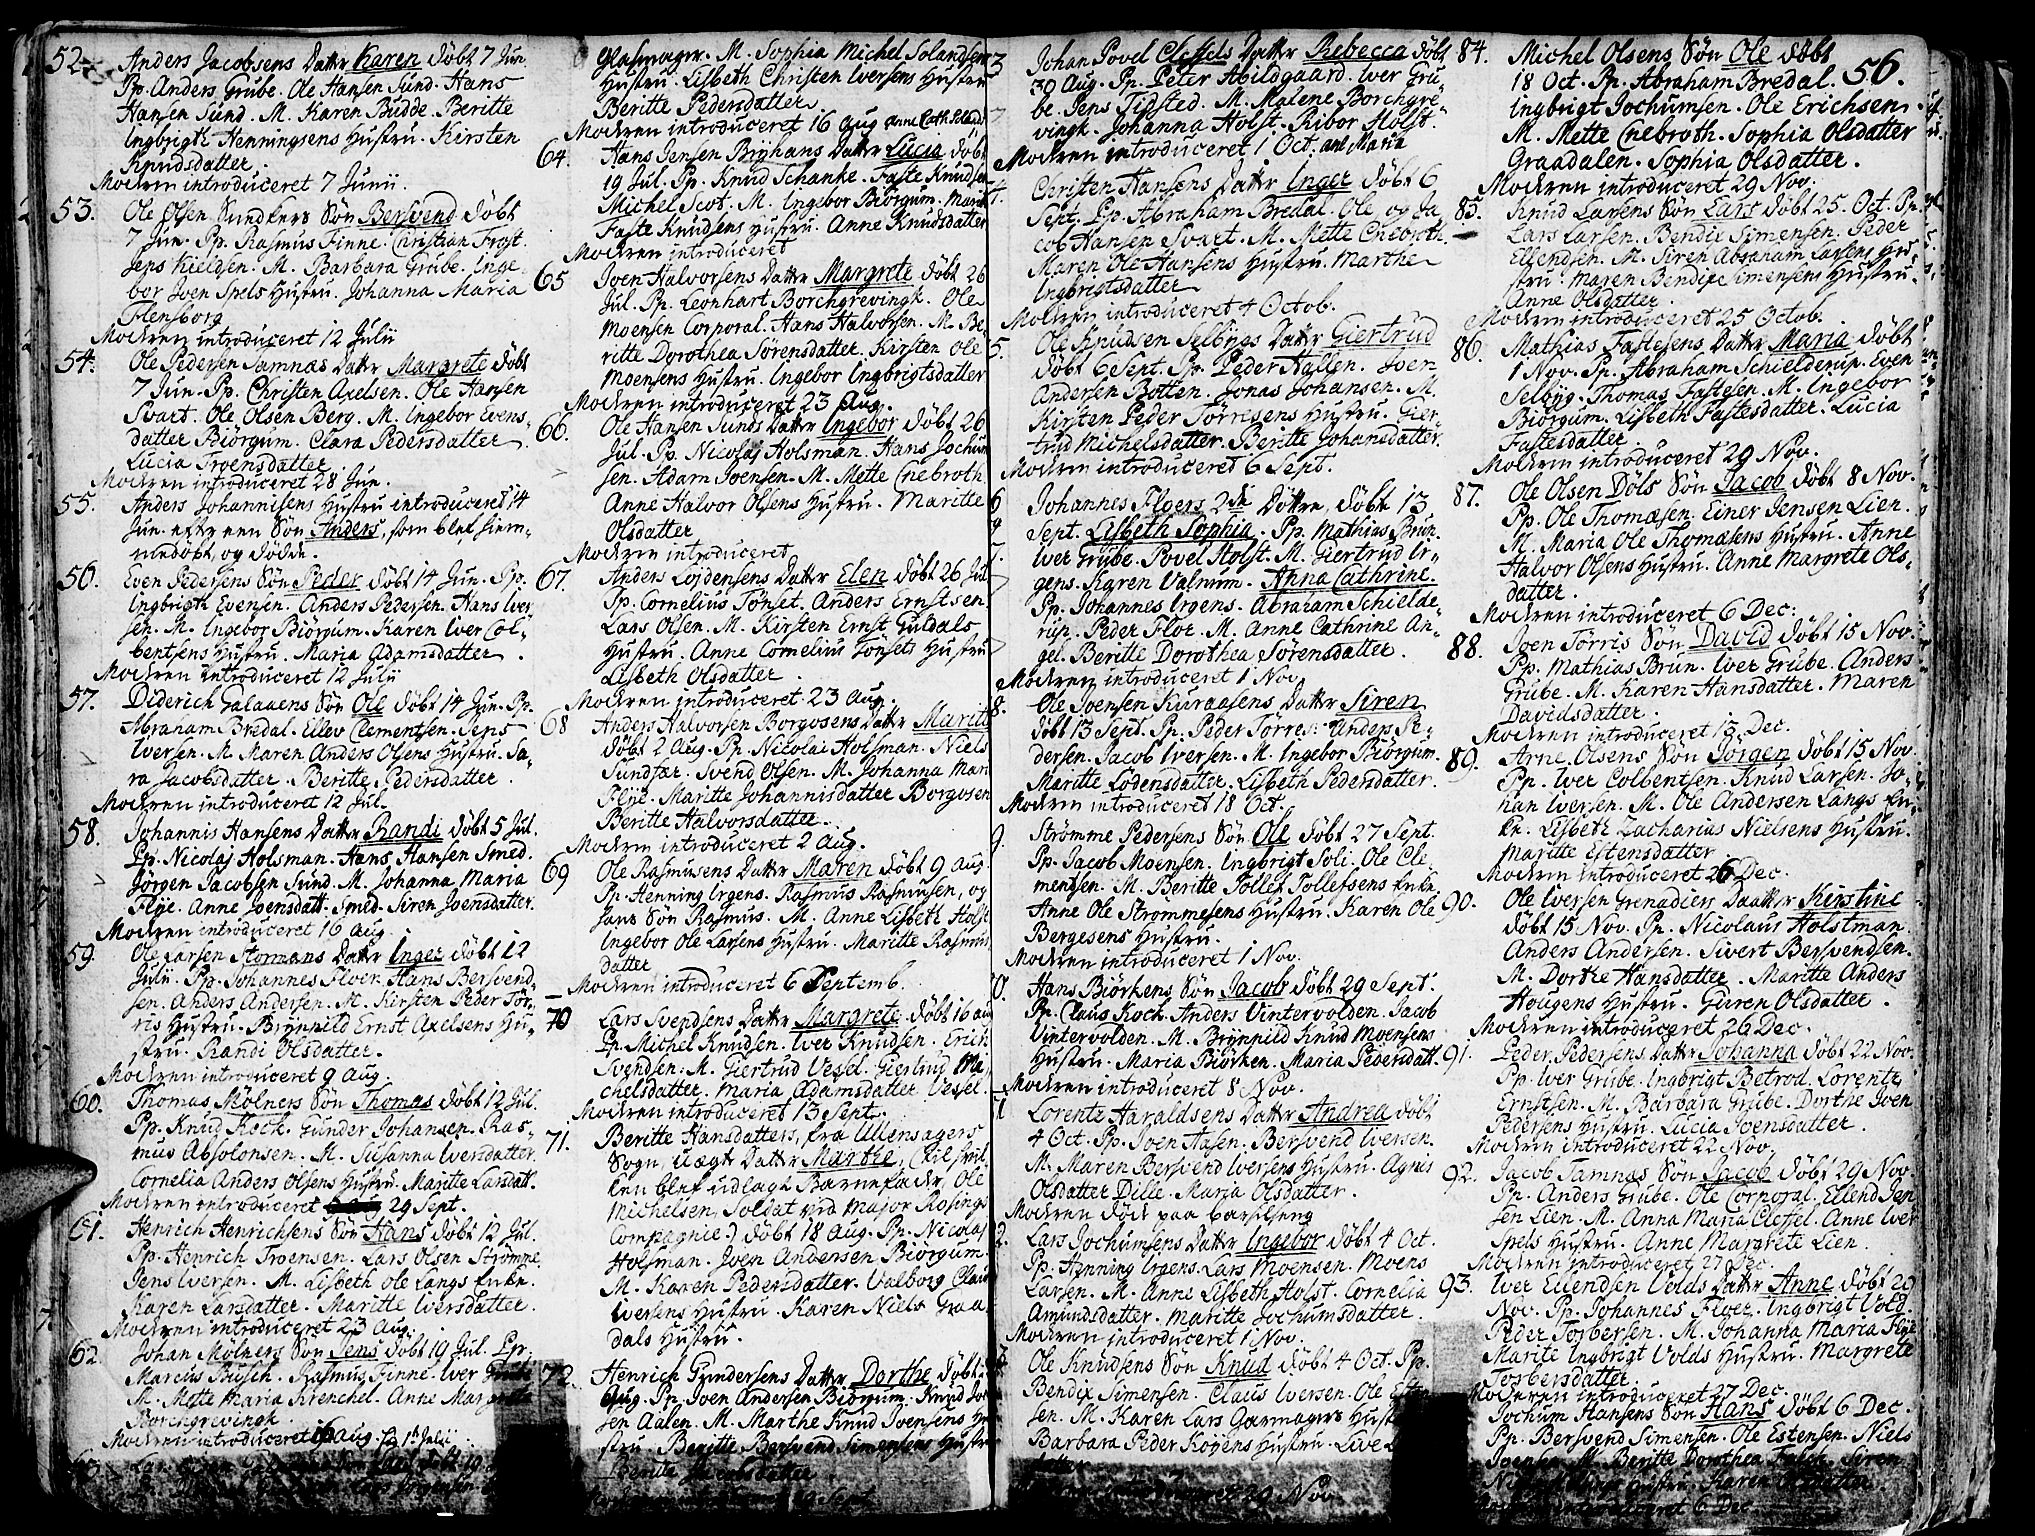 52. Anders Jacobsens Datter Karen döbt 7 Jun.
Pp. Anders Grube. Ole Hansen Sund. Hans
Hansen Sund. M. Karen Budde. Beritte
Ingbrigt Henningsens Hustru. Kirsten
Knudsdatter.
Modren introduceret 7 Junii.
53. Ole Olsen Sundkers Sön Bersvend döbt
7 Jun. Pp. Rasmus Finne. Christian Frost.
Jens M. Barbara Grube. Inge-
bor Joen Spels Hustru. Johanna Maria
Flensborg
Modren introduceret 12 Julii
54. Ole Pedersen Tamnæs Datter Margrete döbt
7 Jun. Pp. Christen Axelsen. Ole Hansen
Svart. Ole Olsen Berg. M. Ingebor Evens-
datter Biörgum. Clara Pedersdatter.
Lucia Troensdatter.
Modren introduceret 28 Jun.
55. Anders Johannisens Hustru introduceret 14
Jun. efter een Sön Anders, som blef hiem-
medöbt, og döde.
56. Even Pedersens Sön Peder döbt 14 Jun. Pp.
Ingbrigt Evensen. Anders Pedersen. Hans Iver-
sen. M. Ingebor Biörgum. Karen Iver Col-
bentsens Hustru. Maria Adamsdatter.
Modren introduceret 12 Julii
57. Diderich Galaaens Sön Ole döbt 14 Jun. Pp.
Abraham Bredal. Ellev Clementsen. Jens
Iversen. M. Maren Anders Olsens Hustru. Sa-
ra Jacobsdatter. Beritte Pedersdatter.
Modren introduceret 12 Jul.
58. Johannis Hansens Datter Randi döbt 5 Jul.
Pp. Nicolaj Holsman. Hans Hansen Smed.
Jörgen Jacobsen Sund. M. Johanna Maria
Flye. Anne Joensdatt. Smed. Siren Joensdatter.
Modren introduceret 16 Aug.
59. Ole Larsen Stormans Datter Inger döbt 12
Julii. Pp. Johannes Floer. Hans Bersvend-
sen. Anders Andersen. M. Kirsten Peder Tör-
ris Hustru. Brynnild Ernst Axelsens Hu-
stru. Randi Olsdatter.
Modren introduceret 9 Aug.
60. Thomas Mölners Sön Thomas döbt 12 Jul.
Pp. Knud Kock. Gunder Johansen. Ras-
mus Absolonsen. M. Susanna Iversdatter.
Cornelia Anders Olsens Hustru. Maritte Larsdatt.
Modren introduceret 29 Sept.
61. Henrich Henrichsens Sön Hans döbt 12 Jul.
Pp. Henrich Troensen. Lars Olsen Strömme.
Jens Iversen. M. Lisbeth Ole Langs Enke.
Karen Larsdatter. Maritte Iversdatter.
Modren introduceret 23 Aug.
62. Johan Mölners Sön Jens döbt 19 Jul. Pp.
Marcus Busch. Rasmus Finne. Iver Grube
M. Mette Maria Krenchel. Anne Margrete
Borchgrevingk.
Modren introduceret 16 Aug.
Glasmager. M. Sophia Michel Solandsens
Hustru. Lisbeth Christen Iversens Hustru
Beritte Pedersdatter
Modren introduceret 16 Aug
64. Hans Jensen Bÿhans Datter Lucia döbt
19 Jul. Pp. Knud Schanke. Faste Knudsen
Michel Scot. M. Ingebor Biörgum. Marit
Faste Knudsens Hustru. Anne Knudsdatter
Modren introduceret
65 Joen Halvorsens Datter Margrete döbt 26
Jul. Pp. Leonhart Borchgrevingk. Ole
Moensen Corporal. Hans Halvorsen. M. Be-
ritte Dorothea Sörensdatter. Kirsten Ole
Moensens Hustru. Ingebor Ingbrigtsdatter
Modren introduceret 23 Aug.
66. Ole Hansen Sunds Datter Ingebor döbt 26
Jul. Pp. Nicolaj Holsman. Hans Jochum-
sen. Adam Joensen. M. Mette Cnebroth.
Anne Halvor Olsens Hustru. Maritte
Olsdatter
Modren introduceret
67. Anders Lojdensens Datter Elen döbt 26 Jul
Pp. Cornelius Tönset. Anders Ernstsen
Lars Olsen. M. Kirsten Ernst Guldals
Hustru. Anne Cornelius Tönsets Hustru
Lisbeth Olsdatter.
Modren introduceret 23 Aug.
68 Anders Halvorsen Borgosens Datter Marit
döbt 2 Aug. Pp. Nicolai Holsman. Niels
Sundfær. Svend Olsen. M. Johanna Mari
Flÿe. Maritte Johannisdatter Borgosen
Beritte Halvorsdatter.
Modren introduceret 2 Aug.
69 Ole Rasmusens Datter Maren döbt 9 Aug
Pp. Henning Irgens. Rasmus Rasmusen, og
hans Sön Rasmus. M. Anne Lisbeth Holst
Ingebor Ole Larsens Hustru. Maritte Rasmus-
datter
Modren introduceret 6 Septemb.
70 Lars Svendsens Datter Margrete döbt 16 Aug
Pp. Michel Knudsen. Iver Knudsen. Erich
Svendsen. M. Giertrud Vessel. Giertrud Mi-
chelsdatter. Maria Adamsdatter Vessel.
Modren introduceret 13 Sept.
71. Beritte Hansdatters, fra Ullensagers
Sogn, uægte Datter Marthe, (til hvil-
ken blef udlagt Barnefader, Ole
Michelsen, Soldat ved Major Rosings
Compagnie) döbt 18 Aug. Pp. Nicolaj
Holsman. Joen Andersen Biörgum.
M. Karen Pedersdatter. Valborg Claus
Iversens Hustru. Karen Niels Graa-
dals Hustru.
72. Henrich Gundersens Datter Dorthe döbt
Aug. Pp. Joen Andersen Biörgum. Knud Jo-
sen Aalen. M. Marthe Knud Joensens Hu-
stru. Beritte Bersvend Simensens Hustru
Berite Jacobsdatter.
3 Johan Povel Clessels Datter Rebecca döbt
30 Aug. Pp. Peter Abildgaard. Iver Gru-
be. Jens Tidsted. M. Malene Borchgre-
vingk. Johanna Holst. Ribor Holst.
Modren introduceret 1 Oct.
Christen Hansens Datter Inger döbt 6
Sept. Pp. Abraham Bredal. Ole og Ja-
cob Hansen Svart. M. Mette Cnebroth.
Maren Ole Hansens Hustru. Marthe
Ingbrigtsdatter
Modren introduceret 4 Octob.
5. Ole Knudsen Selbÿes Datter Giertrud
döbt 6 Sept. Pp. Peder Hallen. Joen
Andersen Botten. Jonas Johansen. M.
Kirsten Peder Törresens Hustru. Gier-
trud Michelsdatter. Beritte Johansdatter.
Modren introduceret 6 Sept.
6 Johannes Floers 2de Döttre, döbt 13
Sept. Lisbeth Sophia. Pp. Mathias Brun.
Iver Grube. Povel Holst. M. Giertrud Ir-
gens. Karen Valmur. Anna Cathrine.
Pp. Johannes Irgens. Abraham Schielde-
rup. Peder Floe. M. Anne Cathrine An-
gel. Beritte Dorothea Sörensdatter.
Modren introduceret 1 Nov.
8. Ole Joensen Kuraasens Datter Siren
döbt 13 Sept. Pp. Peder Törres. Anders Pe-
dersen. Jacob Iversen. M. Ingebor Biörgum.
Maritte Lödensdatter. Lisbeth Pedersdatter.
Modren introduceret 18 Oct.
9. Strömme Pedersens Sön Ole döbt 27 Sept.
Pp. Jacob Moensen. Ingbrigt Soli. Ole Cle-
mentsen. M. Beritte Tollef Tollefsens Enke.
Anne Ole Strömmesens Hustru. Karen Ole
Bergesens Hustru.
Modren introduceret 1 Nov.
0. Hans Biörkens Sön Jacob döbt 29 Sept.
Pp. Claus Kock. Anders Vintervolden. Jacob
Vintervolden. M. Brÿnnild Knud Moensens
Hustru. Maria Biörken. Maria Pedersdatt.
Modren introduceret 8 Nov.
1 Lorentz Haraldsens Datter Andrea döbt
4 Oct. Pp. Joen Aasen. Bersvend Iversen.
M. Maren Bersvend Iversens Hustru. Agnis
Olsdatter Dille. Maria Olsdatter.
Modren död paa barselseng
2. Lars Jochumsens Datter Ingebor döbt 4 Oct.
Pp. Henning Irgens. Lars Moensen. Moens
Larsen. M. Anne Lisbeth Holst. Cornelia
Amundsdatter. Maritte Jochumsdatter.
Modren introduceret 1 Nov.
3 Ole Knudsens Sön Knud döbt 4 Oct. Pp.
Bendix Simensen. Claus Iversen. Ole Esten-
sen. M. Karen Lars Garmagers Hust
Barbara Peder Koÿens Hustru. Live
29 Nov.
84. Michel Olsens Sön Ole döbt
18 Oct. Pp. Abraham Bredal. 56.
Ingbrigt Jochumsen. Ole Erichsen
M. Mette Cnebroth. Sophia Olsdatter
Graadalen. Sophia Olsdatter.
Modren introduceret 29 Nov.
85. Knud Larsens Sön Lars döbt 25. Oct. Pp.
Lars Larsen. Bendix Simensen. Peder
Ellendsen. M. Siren Abraham Larsens Hu-
stru. Maren Bendix Simensens Hustru.
Anne Olsdatter.
Modren introduceret 25 Octob.
86. Mathias Fastesens Datter Maria döbt
1 Nov. Pp. Abraham Schielderup. Even
Selbÿg. Thomas Fastesen. M. Ingebor
Biörgum. Lisbeth Fastesdatter. Lucia
Fastesdatter.
Modren introduceret 29 Nov.
87. Ole Olsen Döls Sön Jacob döbt 8 Nov.
Pp. Ole Thomæsen. Einer Jensen Lien.
M. Maria Ole Thomæsens Hustru. Anne
Halvor Olsens Hustru. Anne Margrete Ols-
datter.
Modren introduceret 6 Dec:
88. Joen Törris Sön David döbt 15 Nov.
Pp. Mathias Brun. Iver Grube. Anders
Grube. M. Karen Hansdatter. Maren
Davidsdatter.
Modren introduceret 13 Dec.
89. Arne Olsens Sön Jörgen döbt 15 Nov.
Pp. Iver Colbentsen. Knud Larsen. Jo-
han Iversen. M. Ole Andersen Langs En-
ke. Lisbeth Zacharius Nielsens Hustru.
Maritte Estensdatter.
Modren introduceret 26 Dec.
90. Ole Iversen Grenadiers Daatter Kirstine
döbt 15 Nov. Pp. Nicolaus Holstman.
Anders Andersen. Sivert Bersvendsen.
M. Dorthe Hansdatter. Maritte Anders
Hougens Hustru. Guren Olsdatter.
Modren introduceret 26 Dec.
91. Peder Pedersens Datter Johanna döbt 22 Nov.
Pp. Iver Grube. Ingbrigt Betrod. Lorentz
Ernstsen. M. Barbara Grube. Dorthe Joen
Pedersens Hustru. Lucia Joensdatter.
Modren introduceret 22 Nov.
92. Jacob Tamnæs Sön Jacob döbt 29 Nov.
Pp. Anders Grube. Ole Corporal. Ellend Jen-
sen Lien. M. Anna Maria Clessel. Anne Iver
Spels Hustru. Anne Margrete Lien.
Modren introduceret 27 Dec.
93. Iver Ellendsen Volds Datter Anne döbt 29
Nov. Pp. Johannes Floer. Ingbrigt Vold.
Peder Torbersen. M. Johanna Maria Flÿe
Marite Ingbrigt Volds Hustru. Margrete
Torbersdatter.
Modren introduceret 27 Dec.
Jochum Hansens Sön Hans döbt 6 Dec.
Pp. Bersvend Simensen. Ole Estensen. Niels
Joensen. M. Beritte Dorothea Fasch. Siren
Hustru. Karen Olsdatter.
6 Dec